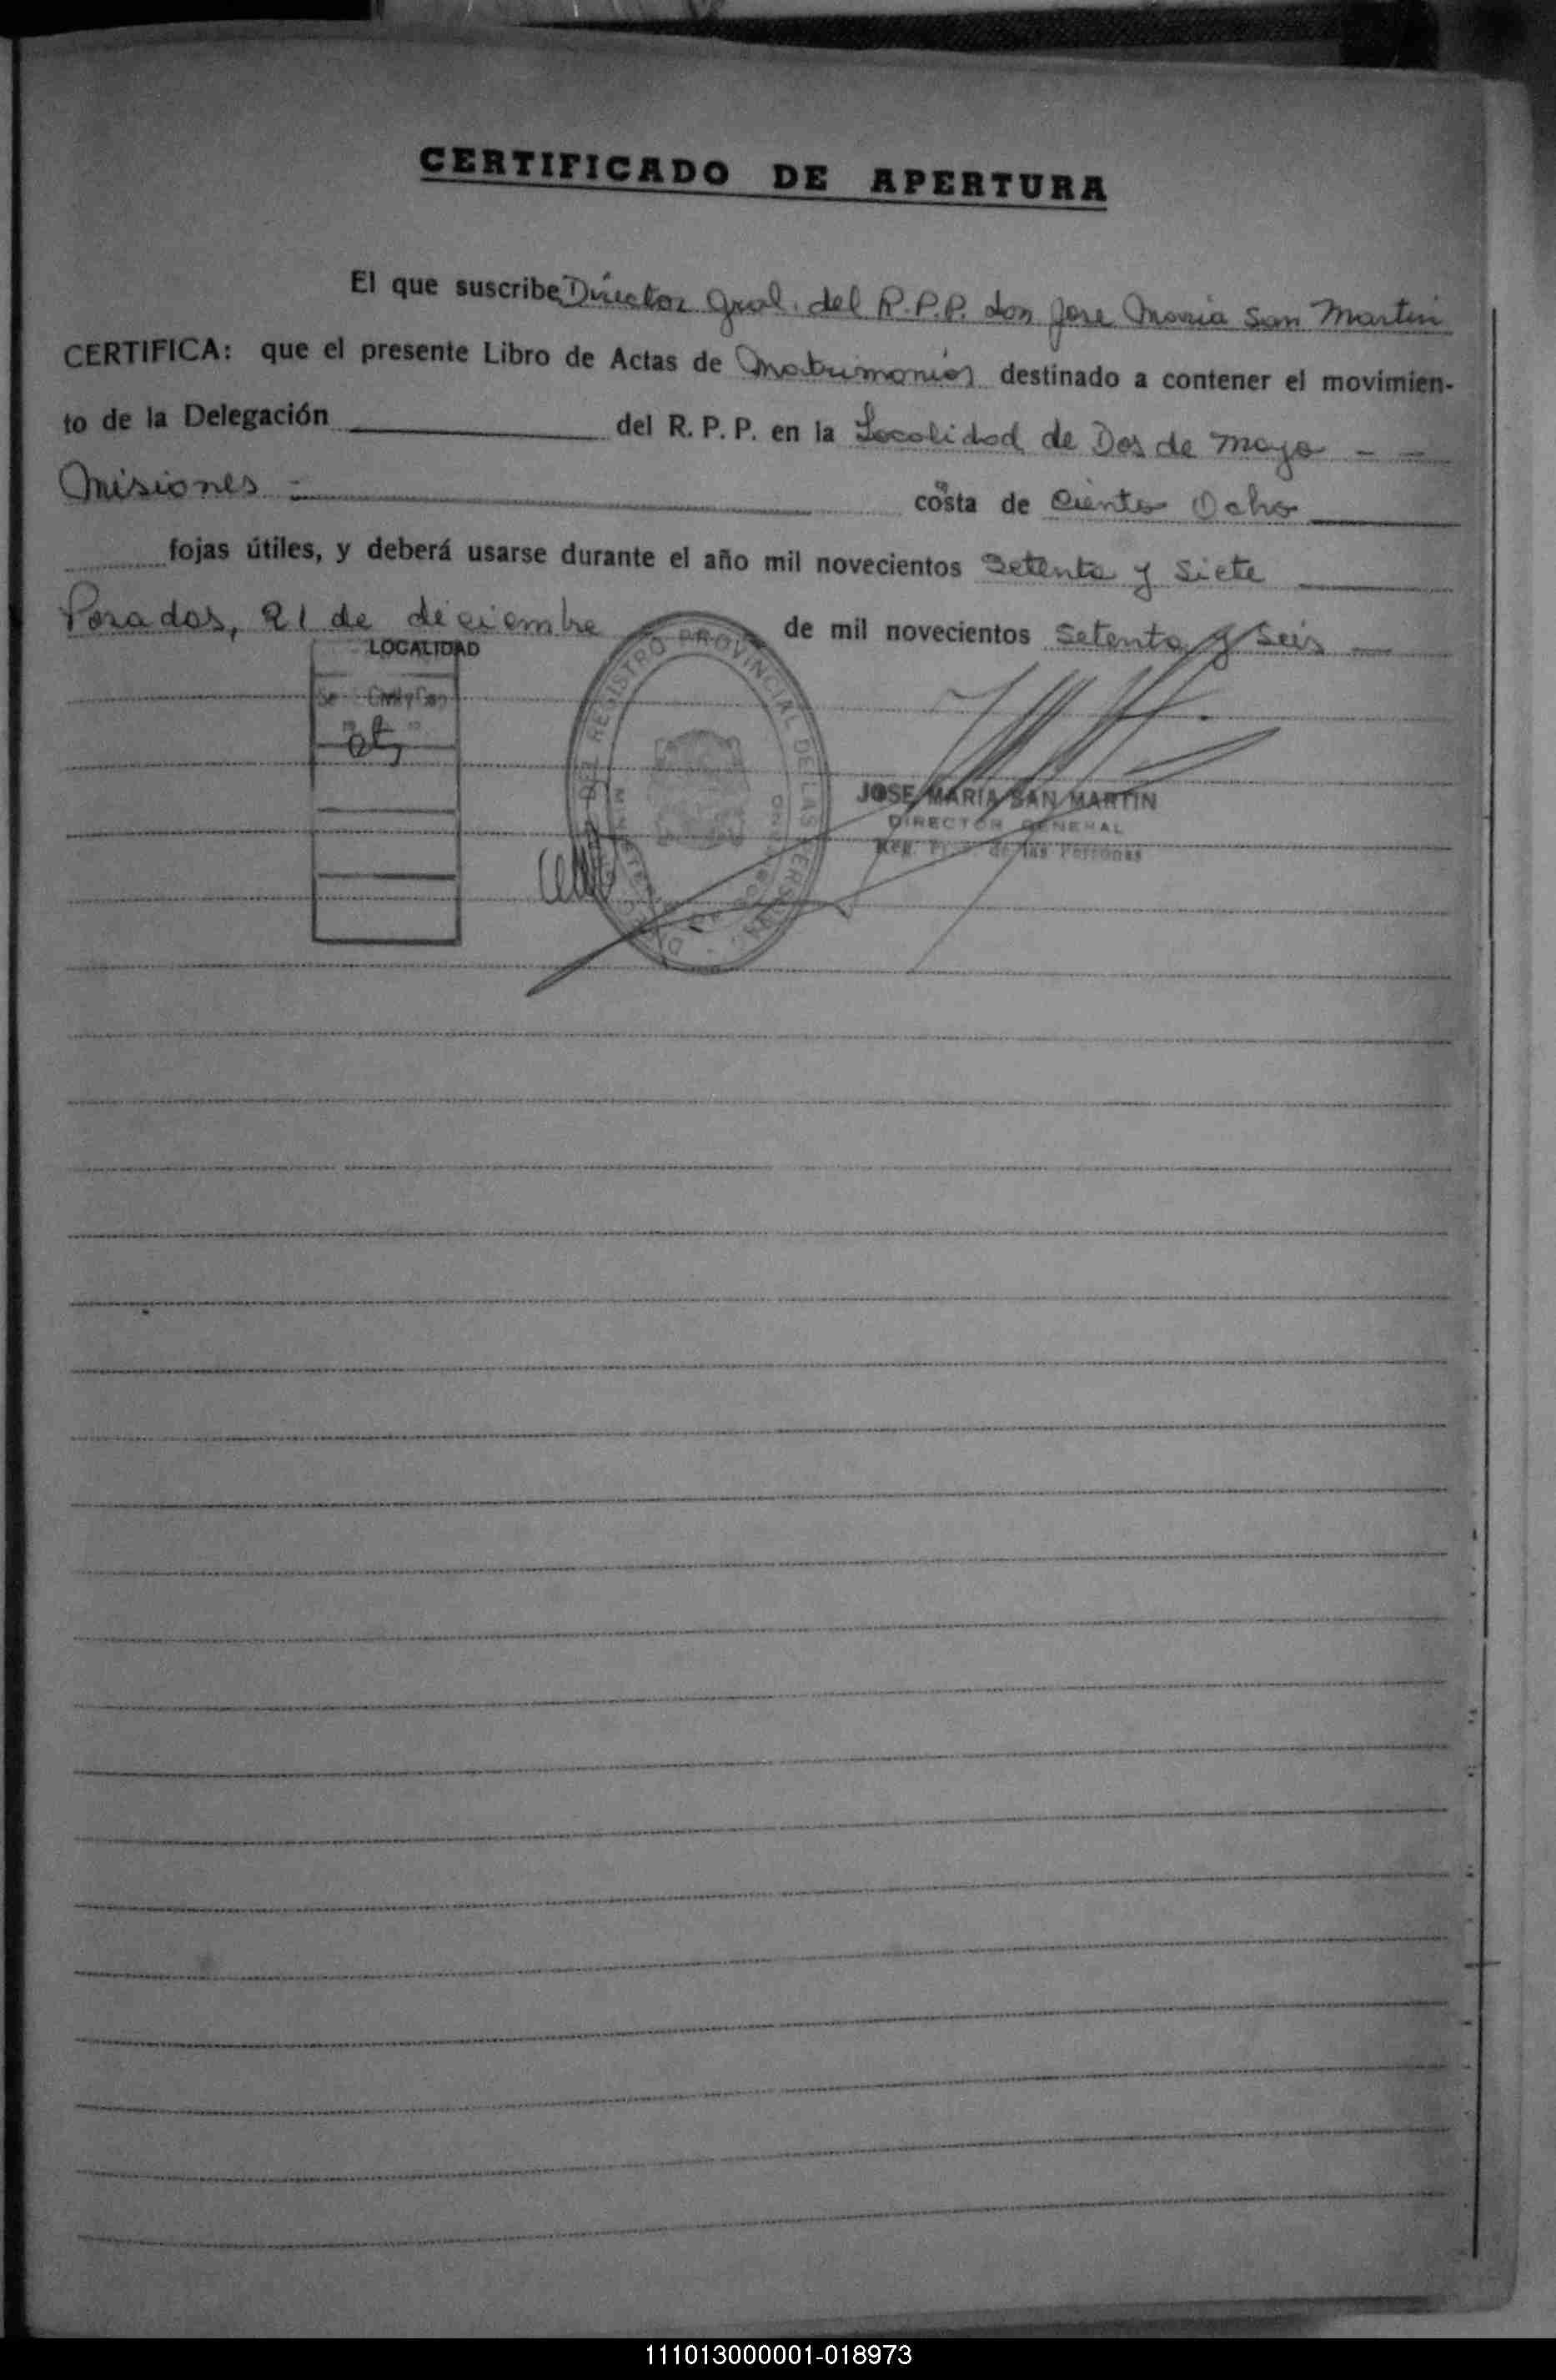 CERTIFICADO DE APERTURA
El que suscribe Director Gral. del R.P.P. don Jose Maria San Martin
CERTIFICA: que el presente Libro de Actas de Matrimonios destinado a contener el movimien-
to de la Delegación del R. P. P. en la Localidad de Dos de Mayo - -
Misiones costa de Ciento Ocho
fojas útiles, y deberá usarse durante el año mil novecientos Setenta y Siete
Posadas, 21 de diciembre de mil novecientos Setenta y Seis
LOCALIDAD
DEL REGISTRO PROVINCIAL DE LAS PERSONAS
JOSE MARIA SAN MARTIN
DIRECTOR GENERAL
de las Personas
111013000001-018973